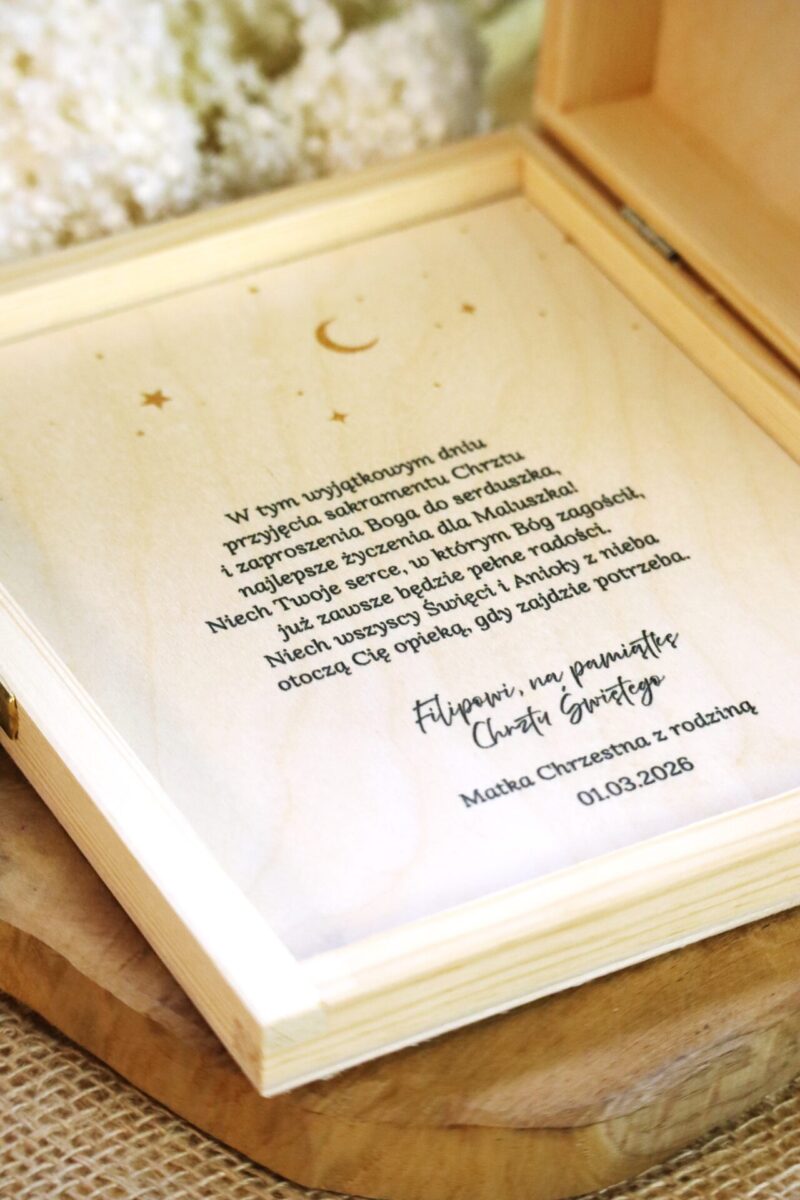 W tym wyjątkowym dniu
przyjęcia sakramentu Chrztu
i zaproszenia Boga do serduszka,
najlepsze życzenia dla Maluszka!
Niech Twoje serce, w którym Bóg zagościł,
już zawsze będzie pełne radości.
Niech wszyscy Święci i Anioły z nieba
otoczą Cię opieką, gdy zajdzie potrzeba.
Filipowi, na pamiątkę
Chrztu Świętego
Matka Chrzestna z rodziną
01.03.2026